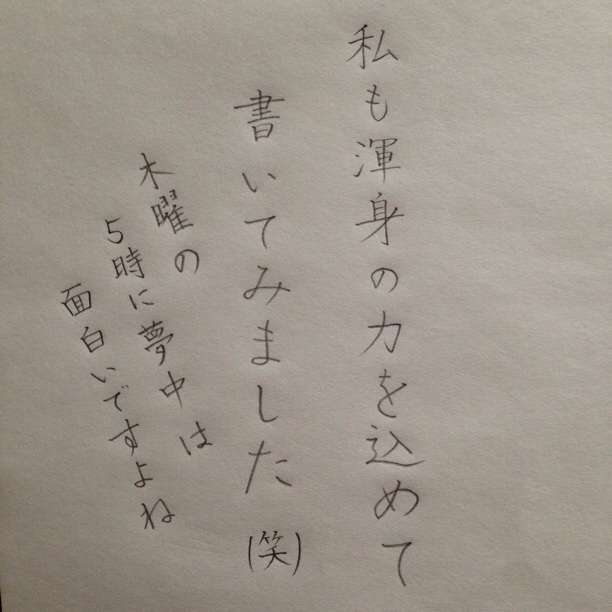 私も渾身の力を込めて
書いてみました
(笑)
木曜の
5時に夢中は
面白いですよね